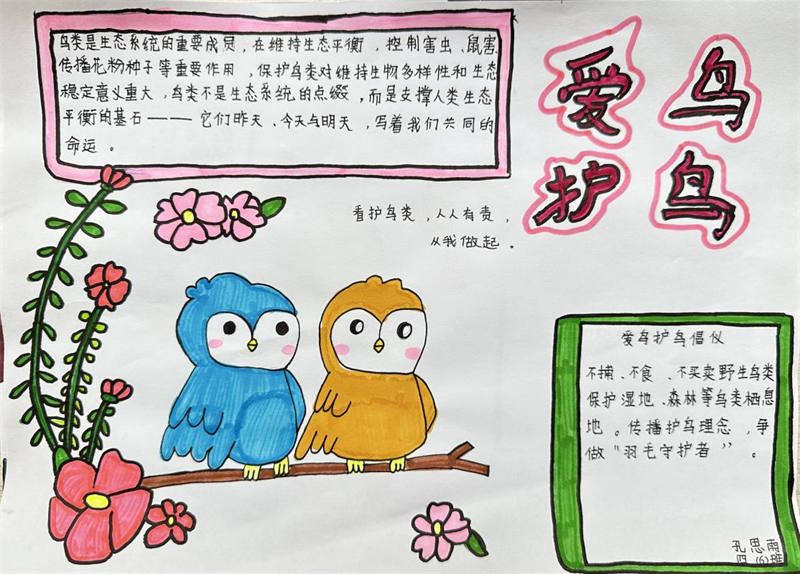 鸟类是生态系统的重要成员，在维持生态平衡，控制害虫、鼠害
传播花粉种子等重要作用，保护鸟类对维持生物多样性和生态
稳定意义重大，鸟类不是生态系统的点缀，而是支撑人类生态
平衡的基石——它们昨天、今天与明天，写着我们共同的
命运。
爱鸟
护鸟
看护鸟类，人人有责，
从我做起。
爱鸟护鸟倡仪
不捕、不食、不买卖野生鸟类
保护湿地、森林等鸟类栖息
地。传播护鸟理念，争
做“羽毛守护者”。
孔思雨
四（6）班